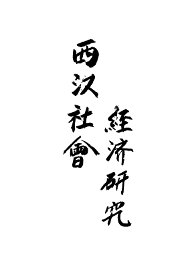 西汉社會
經济研究